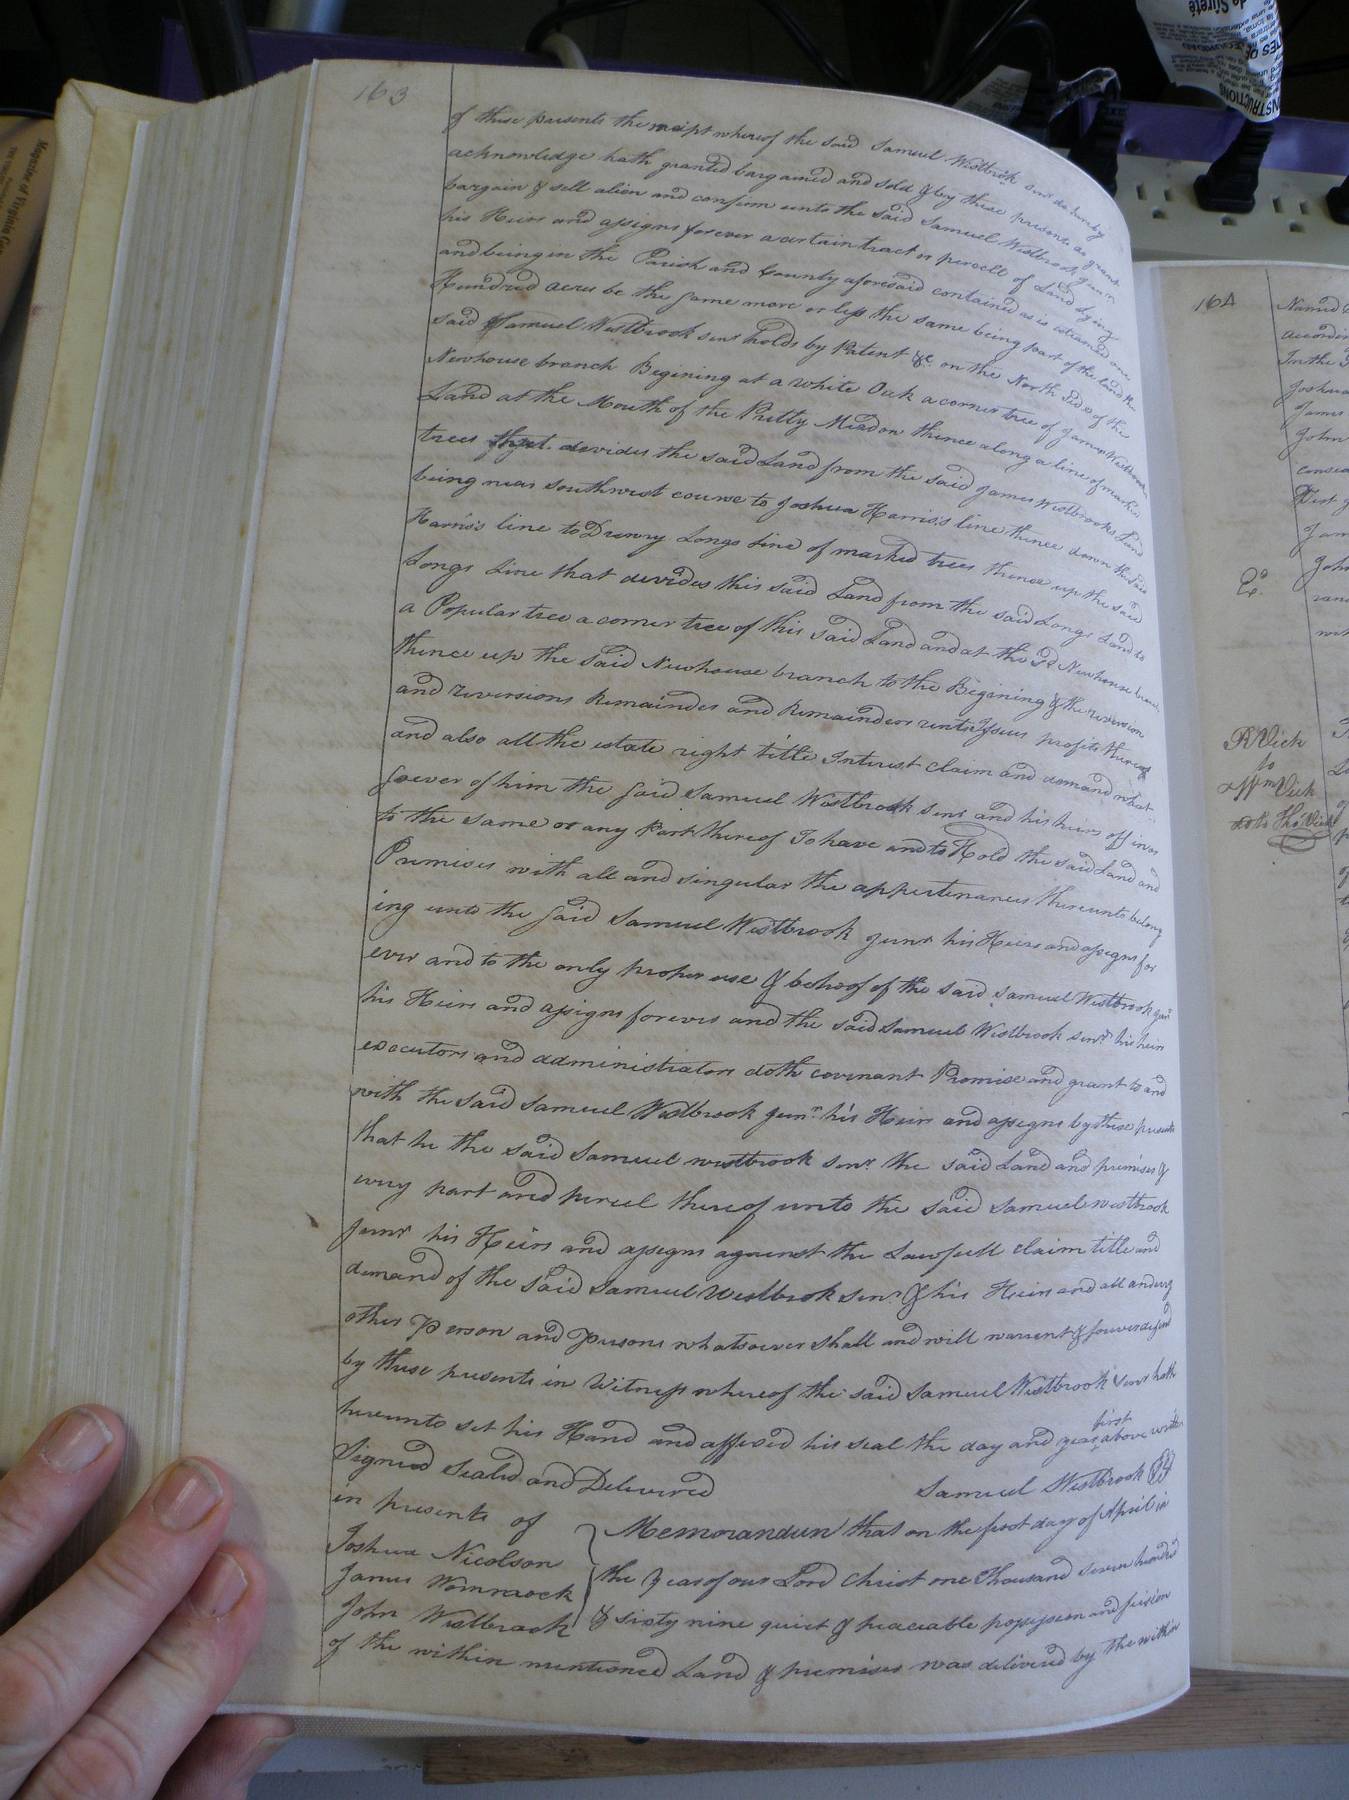 163
of these presents the receipt whereof the said Samuel Westbrook senr do hereby
acknowledge hath granted bargained and sold & by these presents do grant
bargain & sell alien and confirm unto the said Samuel Westbrook junr
his Heirs and assigns forever a certain tract or percell of Land lying
and being in the Parish and County aforesaid contained as is esteamed one
Hundred acres be the same more or less the same being part of the land the
said Samuel Westbrook senr holds by Patent &c on the North side of the
Newhouse branch Begining at a white Oak a corner tree of James Westbrooks
Land at the Mouth of the Pretty Meadow thence along a line of marked
trees that devides the said Land from the said James Westbrooks Land
being near Southwest course to Joshua Harris's line thence down the said
Harris's line to Drewry Longs Line of marked trees thence up the said
Longs Line that devides this said Land from the said Longs Land to
a Popular tree a corner tree of this said Land and at the sd Newhouse branch
thence up the said Newhouse branch to the Begining & the revirsion
and revirsions Remainder and Remainders rents Issues profits thereof
and also all the estate right title Interest claim and demand what
soever of him the said Samuel Westbrook senr and his heirs off in or
to the same or any Part thereof To have and to Hold the said Land and
Premises with all and singular the appertenances thereunto belong
ing unto the said Samuel Westbrook junr his Heirs and assigns for
ever and to the only proper use & behoof of the said Samuel Westbrook junr
his Heirs and assigns forever and the said Samuel Westbrook senr his heirs
executors and administrators doth covenant Promise and grant to and
with the said Samuel Westbrook junr his Heirs and assigns by these presents
that he the said Samuel westbrook senr the said Land and premises &
every part and percel thereof unto the said Samuel westbrook
Junr his Heirs and assigns against the Lawfull claim title and
demand of the said Samuel Westbrook senr & his Heirs and all and every
other person and persons whatsoever shall and will warrent & forever defend
by these presents in Witness whereof the said Samuel Westbrook senr hath
hereunto set his Hand and affixed his seal the day and year first above written
Signed Sealed and Delivered Samuel Westbrook
in presents of
Memorandun that on the first day of April in
Joshua Nicolson
the year of our Lord Christ one Thousand seven hundred
James Wommock
John Westbrook & sixty nine quiet & peaceable possession and seision
of the within mentioned Land & premises was delivered by the within
164
Named
accordin
In the
Joshua
James
John
James
John
R Vick
to
Wm Vick
INSTRUCTIONS
de Sûreté
Magazine of Virginia Ge